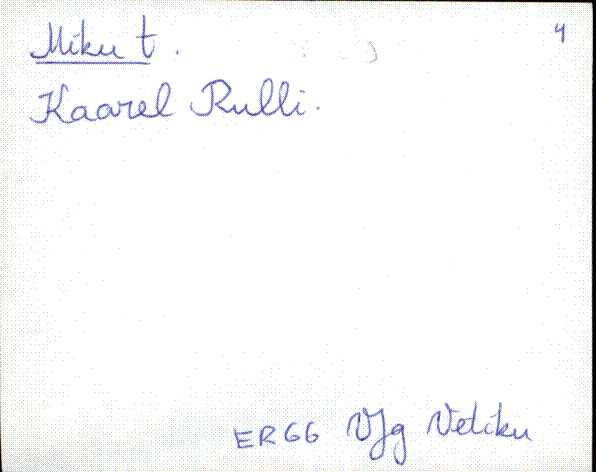 Miku t.
4
Kaarel Rulli.
ER66 VJg Vetiku